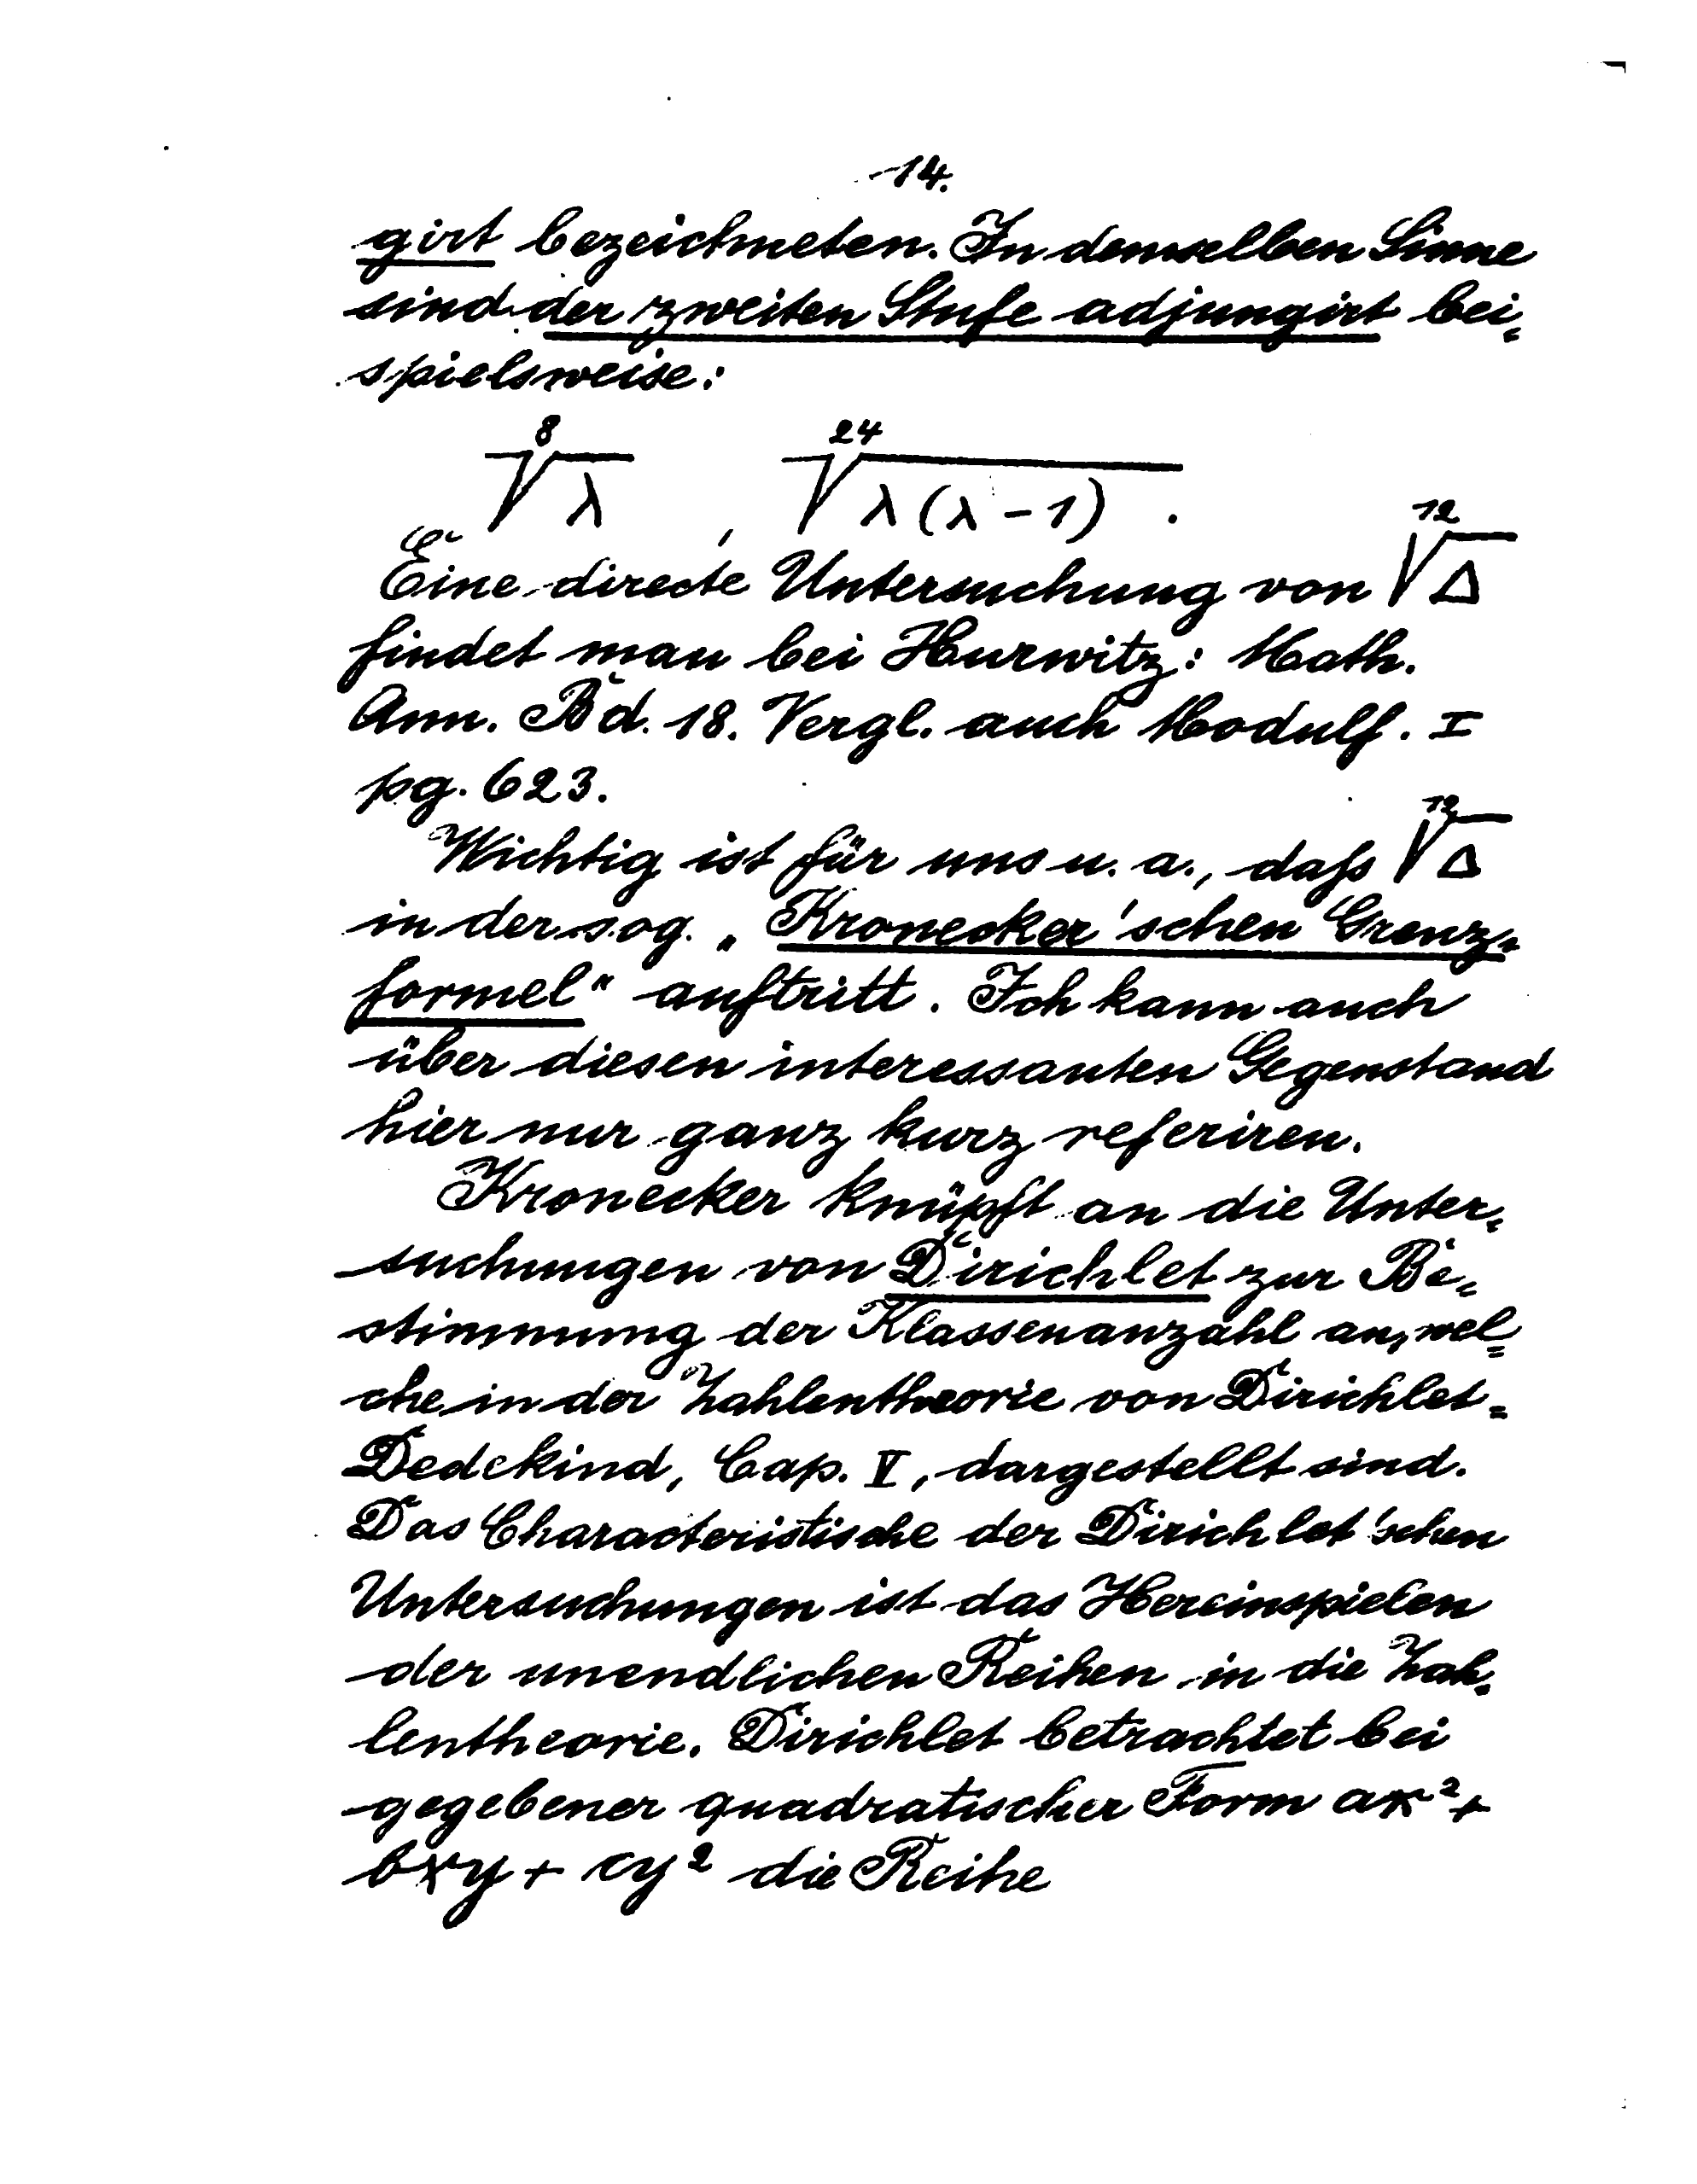 14.
girt bezeichneten. In demselben Sinne
sind der zweiten Stufe adjungirt bei-
spielsweise:
\sqrt[8]{λ} , \sqrt[24]{λ(λ-1)} .
Eine directe Untersuchung von \sqrt[12]{Δ}
findet man bei Hurwitz: Math.
Ann. Bd. 18. Vergl. auch Modulf. I
pg. 623.
Wichtig ist für uns u. a., daß \sqrt[12]{Δ}
in der sog. „Kronecker'schen Grenz-
formel“ auftritt. Ich kann auch
über diesen interessanten Gegenstand
hier nur ganz kurz referiren.
Kronecker knüpft an die Unter-
suchungen von Dirichlet zur Be-
stimmung der Klassenanzahl an, wel-
che in der Zahlentheorie von Dirichlet-
Dedekind, Cap. V, dargestellt sind.
Das Characteristische der Dirichlet'schen
Untersuchungen ist das Hereinspielen
der unendlichen Reihen in die Zah-
lentheorie. Dirichlet betrachtet bei
gegebener quadratischer Form ax²+
bxy + cy² die Reihe